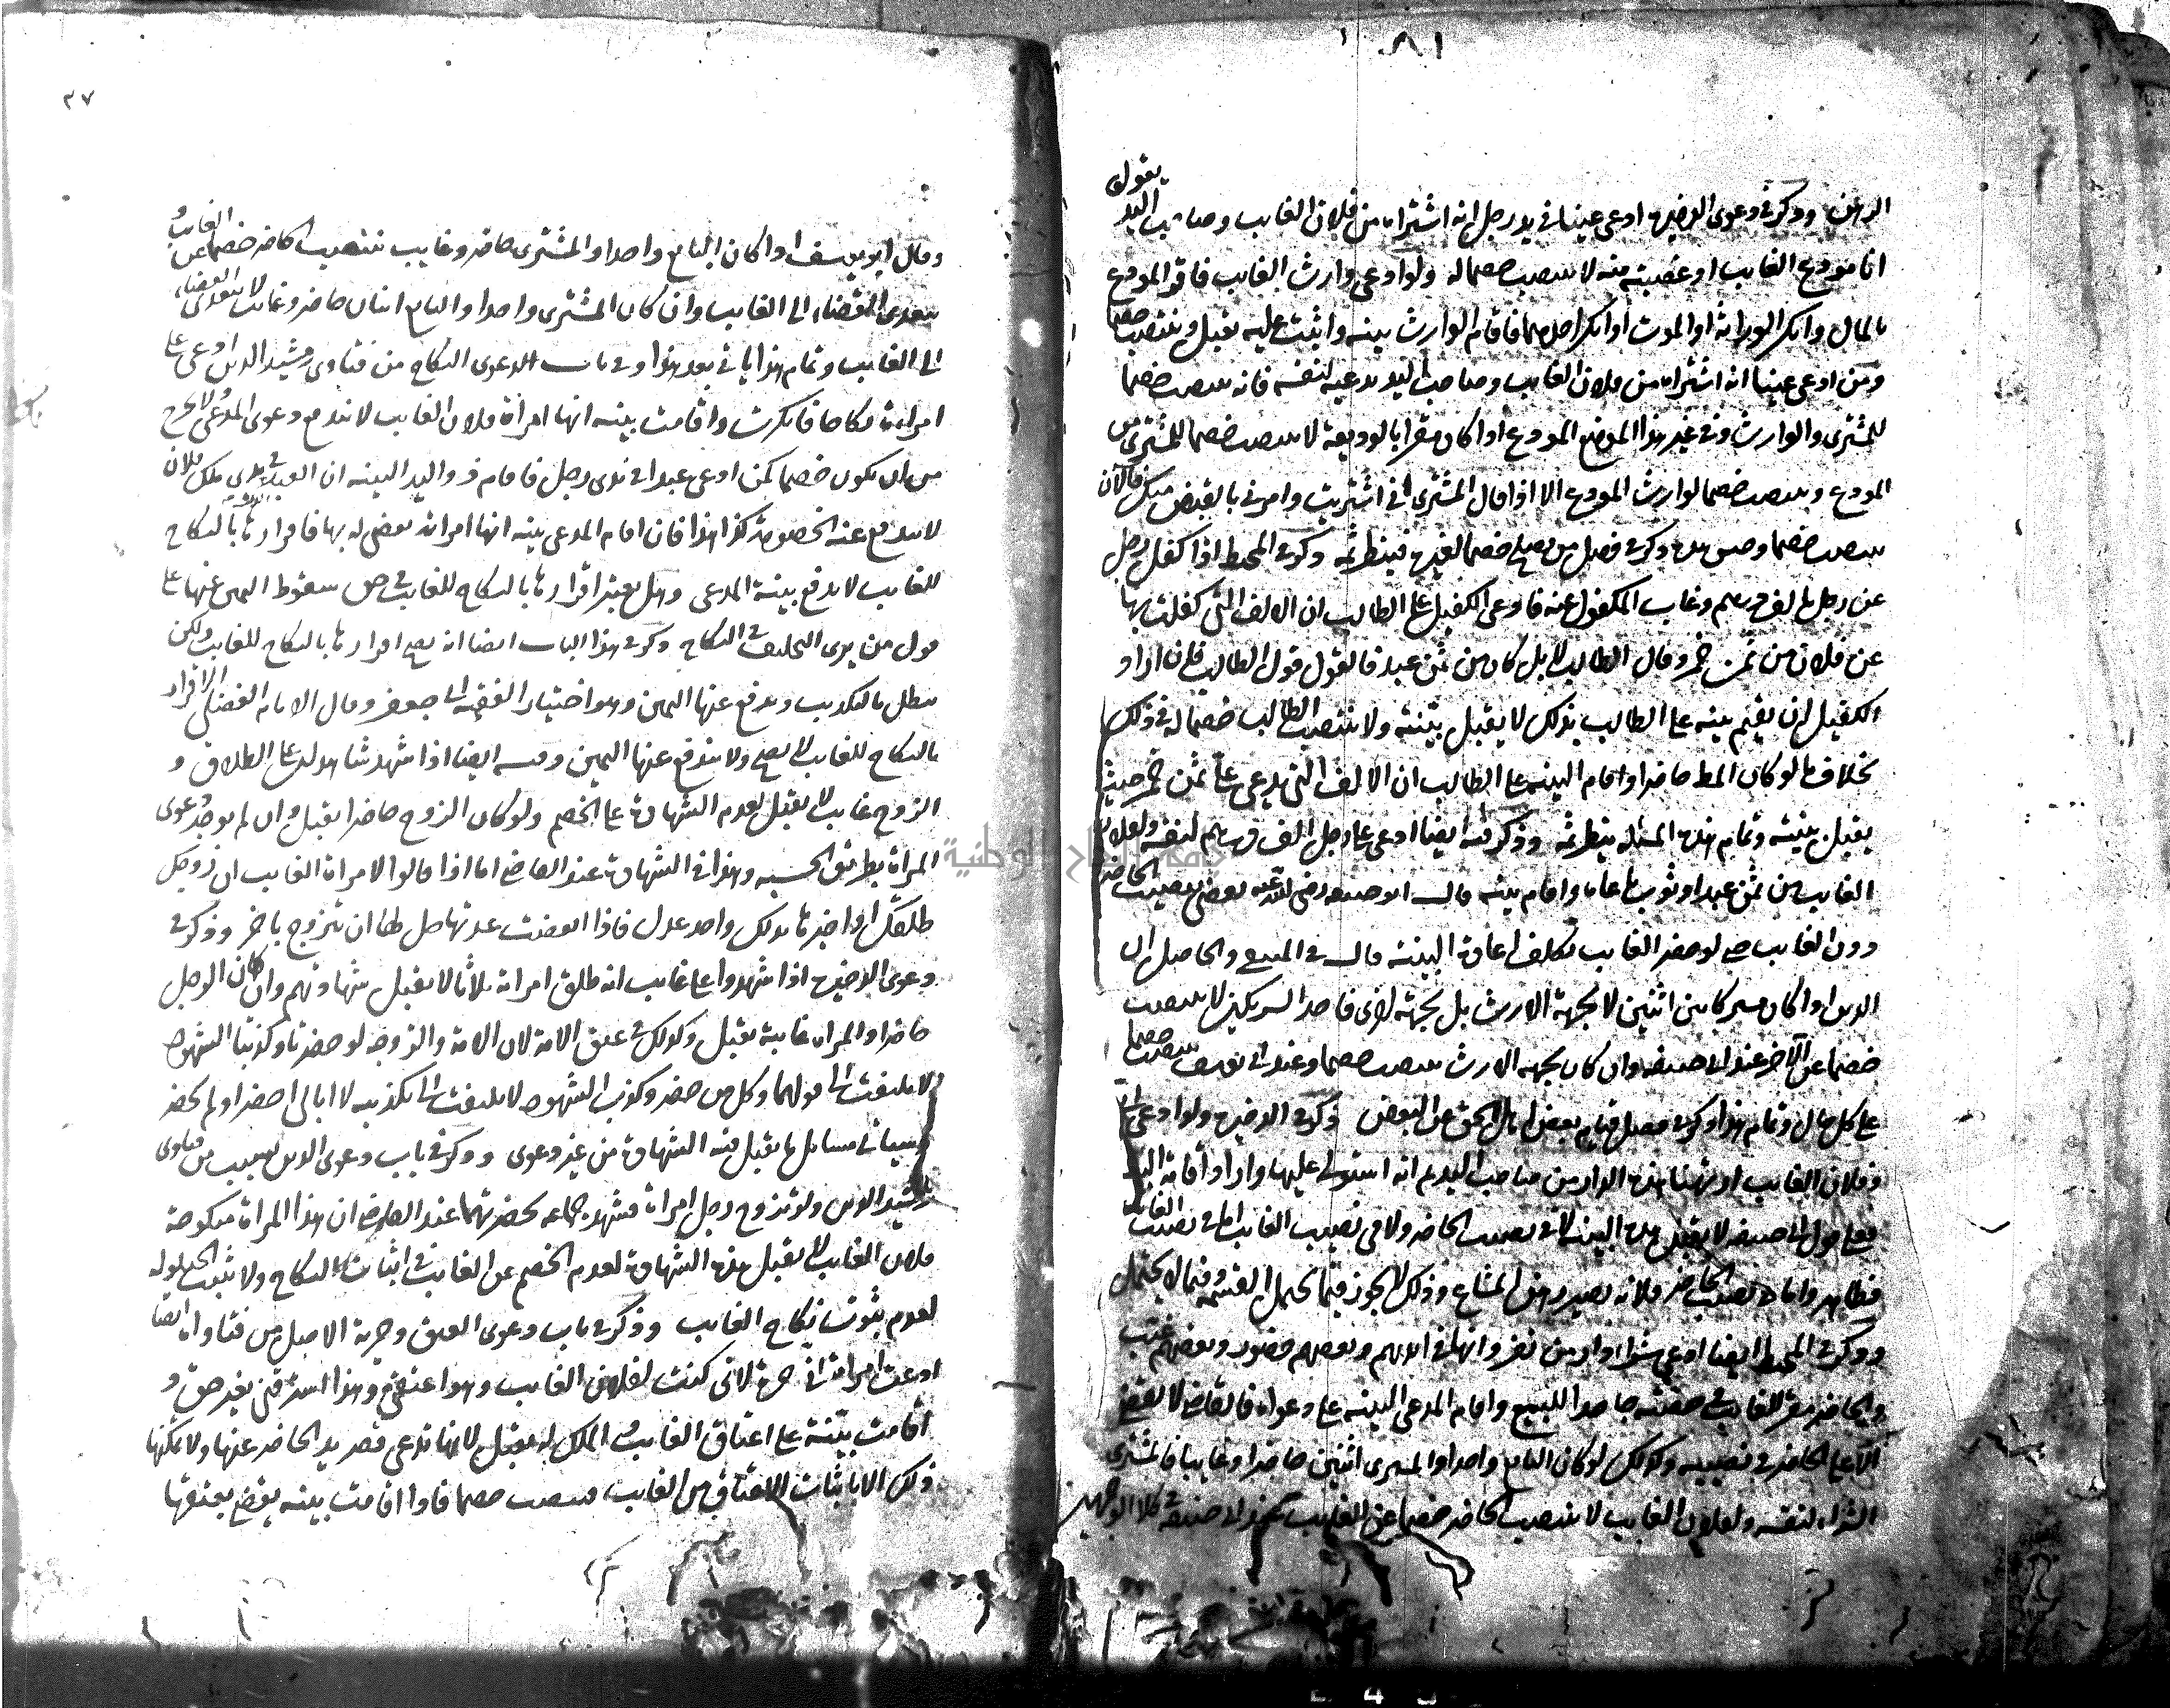 ٨١
الرهن وذكر في دعوى الوضيح ادعى عينا في يد رجل انه اشتراه من فلان الغايب وصاحب اليد يقول
انا مودع الغايب او غصبته منه لا ينتصب خصما له ولو ادعى وارث الغايب فاقر المودع
بالمال وانكر الوراثة او الموت او انكر اصلهما فاقام الوارث بينة واثبت عليه يقبل وينتصب خصما
ومن ادعى عينا انه اشتراه من فلان الغايب وصاحب اليد يدعيه لنفسه فانه ينتصب خصما
للمشترى والوارث وفي غير هذا الموضع المودع اذا كان مقرا بالوديعة لا ينتصب خصما للمشترى من
المودع وينتصب خصما لوارث المودع الا اذا قال المشترى اني اشتريت وامرني بالقبض منك فالان
ينتصب خصما وجنس هذه ذكر في فصل من يصلح خصما لغيره فينظر ثمه وذكر في المحيط اذا كفل رجل
عن رجل بالف درهم وغاب المكفول عنه فادعى الكفيل على الطالب ان الالف التي كفلت بها
عن فلان من ثمن خمر وقال الطالب لا بل كان من ثمن عبد فالقول قول الطالب فلو اراد
الكفيل ان يقيم بينه على الطالب بذلك لا يقبل بينته ولا ينتصب الطالب خصما له في ذلك
بخلاف ما لو كان المط حاضرا واقام البينه على الطالب ان الالف التي يدعى على ثمن خمر حيث
يقبل بينته وتمام هذه المسئلة ينظر ثمه وذكر فيه ايضا ادعى على رجل الف درهم لنفسه ولفلان
الغايب من ثمن عبد او ثوب باعاه واقام بينه قال ابو حنيفه رضى الله عنه يقضى بنصيب الحاضر
دون الغايب حتى لو حضر الغايب يكلف اعادة البينه قال في المبيع والحاصل ان
الدين اذا كان مشركا بين اثنين لا بجهة الارث بل بجهة اخرى فاحد الشريكين لا ينتصب
خصما عن الآخر عند ابى حنيفه وان كان بجهه الارث ينتصب خصما وعند ابى يوسف ينتصب خصما
على كل حال وتمام هذا ذكر في فصل قيام بعض اهل الحق عن البعض وذكر في الوضيح ولو ادعى انى
وفلان الغايب ارتهنا هذه الدار من صاحب اليد ثم انه استولى عليها واراد اقامة البينه
فعلى قول ابى حنيفه لا يقبل هذه البينه لا في نصيب الحاضر ولا في نصيب الغايب اما في نصيب الغايب
فظاهر واما في نصيب الحاضر فلانه يصير رهن المشاع وذلك لا يجوز فيما يحتمل القسمه وفيما لا يحتمل
وذكر في المحيط ايضا ادعى شراء دار من نفر وانها في ايديهم وبعضهم حضور وبعضهم غيب
والحاضر مقر للغايب في حصته جاحد للبيع واقام المدعى البينه على دعواه فالقاضى لا يقضى
الا على الحاضر في نصيبه وكذلك لو كان البايع واحدا والمشترى اثنين حاضرا وغايبا فالمشترى
الشراء لنفسه ولفلان الغايب لا ينتصب الحاضر خصما عن الغايب عند ابى حنيفه في كلا الوجهين
٣٧
وقال ابو يوسف اذا كان البايع واحدا والمشترى حاضر وغايب ينتصب الحاضر خصما عن الغايب و
يتعدى القضاء الى الغايب وان كان المشترى واحدا والبايع اثنان حاضر وغايب لا يتعدى القضاء
الى الغايب وتمام هذا ياتى بعد هذا وفي باب الدعوى النكاح من فتاوى رشيد الدين ادعى على
امراءة نكاحا فانكرت واقامت بينه انها امرأة فلان الغايب لا تندفع دعوى المدعى ولا يخرج
من ان يكون خصما كمن ادعى عبدا في يدى رجل فاقام ذو اليد البينه ان العبد في يدى ملك فلان
لا يندفع عنه الخصومة كذا هذا فان اقام المدعى بينه انها امراته يقضى له بها فاقرارها بالنكاح
للغايب لا يدفع بينة المدعى وهل يعتبر اقرارها بالنكاح للغايب في حق سقوط اليمين عنها على
قول من يرى التحليف في النكاح ذكر في هذا الباب ايضا انه يصح اقرارها بالنكاح للغايب ولكن
يبطل بالتكذيب ويدفع عنها اليمين وهو اختيار الفقيه ابى جعفر وقال الامام الفضلى الاقرار
بالنكاح للغايب لا يصح ولا يندفع عنها اليمين وفيه ايضا اذا شهد شاهدان على الطلاق و
الزوج غايب لا يقبل لعدم الشهادة على الخصم ولو كان الزوج حاضرا يقبل وان لم يوجد دعوى
المراة بطريق الحسبه وهذا في الشهادة عند القاضى اما اذا قالوا لامراة الغايب ان زوجك
طلقك او اخبرها بذلك واحد عدل فاذا انقضت عدتها حل لها ان تتزوج باخر وذكر في
دعوى الوضيح اذا شهدوا على غايب انه طلق امراته ثلاثا لا يقبل شهادتهم وان كان الرجل
حاضرا والمراه غايبة يقبل وكذلك في عتق الامة لان الامة والزوجه لو حضرتا وكذبتا الشهود
لا يلتفت الى قولهما وكل من حضر وكذب الشهود لا يلتفت الى تكذيبه لا ابالى احضر او لم يحضر
وسياتى مسائل ما يقبل فيه الشهادة من غير دعوى وذكر في باب دعوى الدين بسبب من فتاوى
رشيد الدين ولو تزوج رجل امراة فشهد جماعه بحضرتهما عند القاضى ان هذا المراة منكوحة
فلان الغايب لا يقبل هذه الشهادة لعدم الخصم عن الغايب في اثبات النكاح ولا يثبت الحيلوله
لعدم ثبوت نكاح الغايب وذكر في باب دعوى العتق وحرية الاصل من فتاواه ايضا
ادعت امراة انى حرة لانى كنت لفلان الغايب وهو اعتقنى وهذا استرقنى بغير حق و
اقامت بينة على اعتاق الغايب والملك له يقبل لانها تدعى قصر يد الحاضر عنها ولا يمكنها
ذلك الا باثبات الاعتاق من الغايب، فينتصب خصما فاذا اقامت بينه يقضى بعتقها